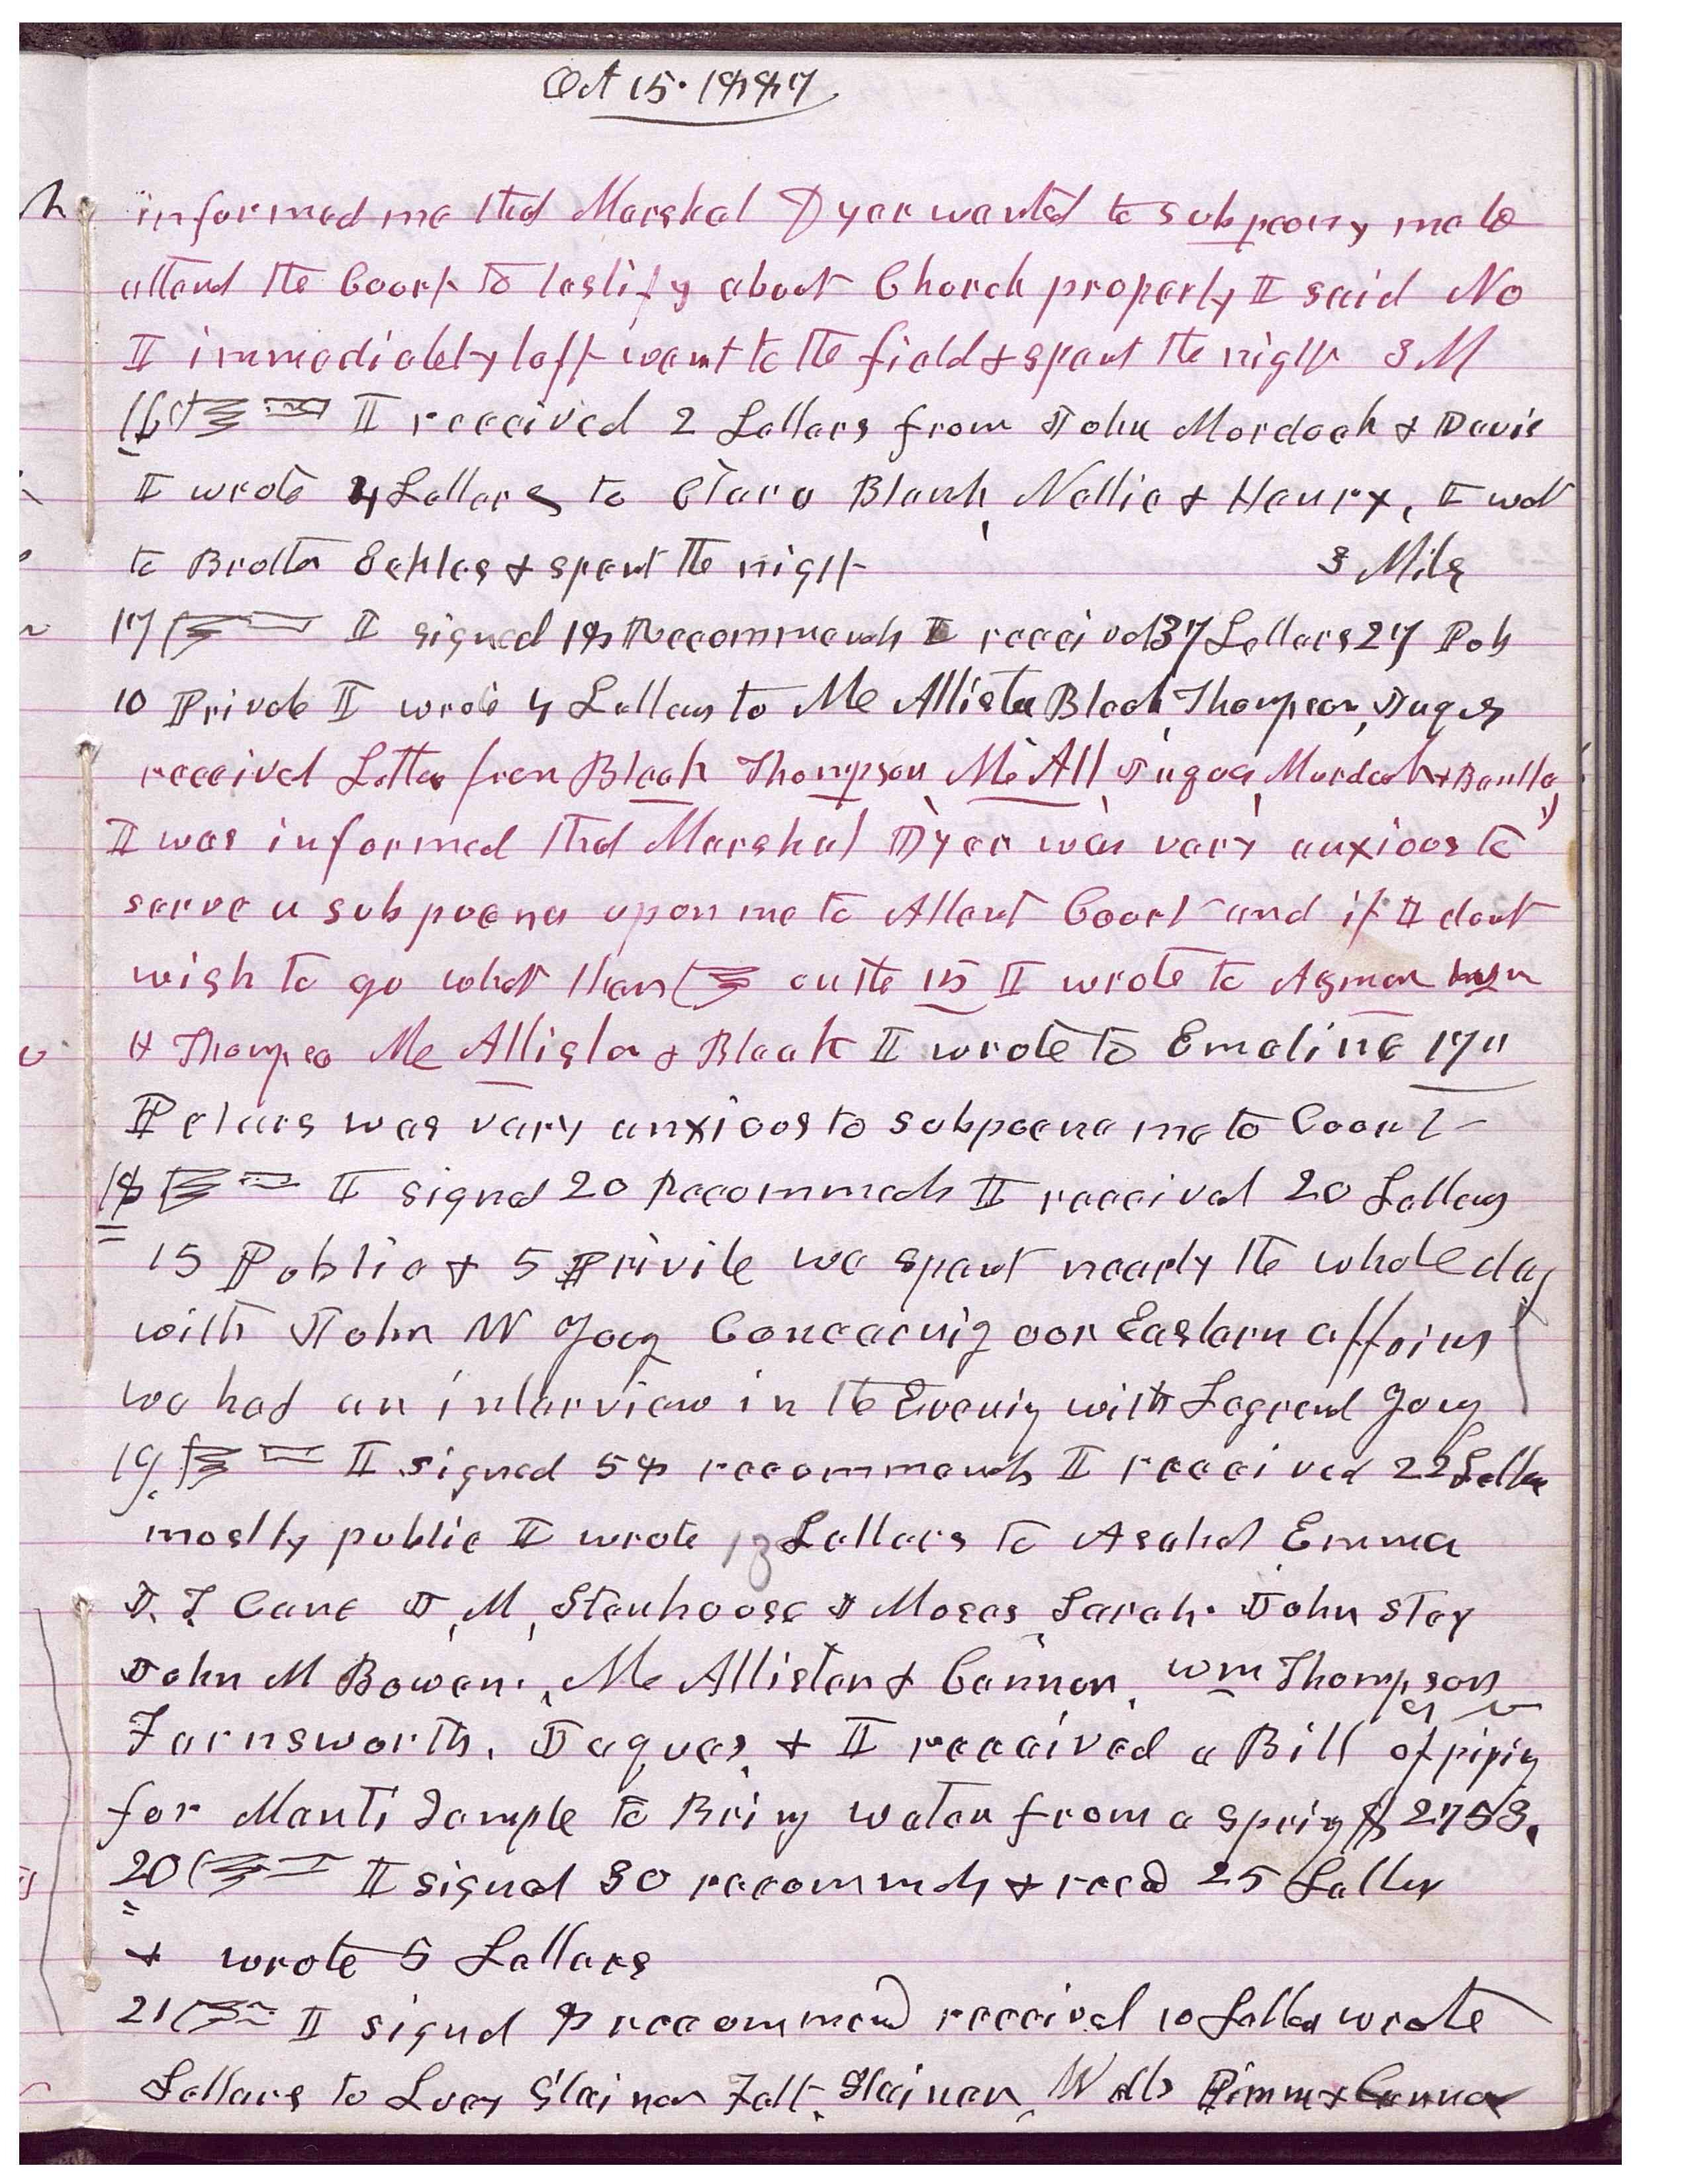 Oct 15. 1887
informed me that Marshal Dyer wanted to subpeony me to
attend the Court to testify about Church property I said No
I immediately left went to the field & spent the night 3 M
16 I received 2 Letters from John Mordock & Davis
I wrote 4 Letters to Clara Blanch, Nellie & Henry, I
to Brother Eahles & spent the night 3 Mils
17 I signed 18 Recommends I received 37 Letters 27 Pub
10 Private I wrote 4 Letters to Mc Allister Bleak, Thompson, Juques
received Letters from Bleak Thompson, McAll Juques, Murdock &
I was informed that Marshal Dyer was very anxious to
serve a subpoena upon me to Attend Court and if I dont
wish to go what then on the 15 I wrote to Asmon
H Thompson Mc Allister & Bleak I wrote to Emeline 17"
Peters was very anxious to subpoena me to Court
18 I signed 20 Recommends I received 20 Letters
15 Public & 5 Private we spent nearly the whole day
with John W Young Concernig our Eastern affairs
we had an interview in the Evenig with Legrand Young
19 I signed 58 recommends I received 22 Letters
mostly public I wrote 13 Letters to Asahel Emma
J. T Cane J, M, Stenhouse & Moses, Sarah. John Stay
John M Bowen. Mc Allister & Cannon, Wm Thompson
Farnsworth, Jaques, & I received a Bill of pipig
for Manti Temple to Bring water from a sprig $2753.
20 I signed 30 recommends & recd 25 Letters
& wrote 5 Letters
21 I signed 8 recommend received 10 Letters wrote
Letters to Lucy Stainer Felt, Stainer, Wells Pimm & Cannon